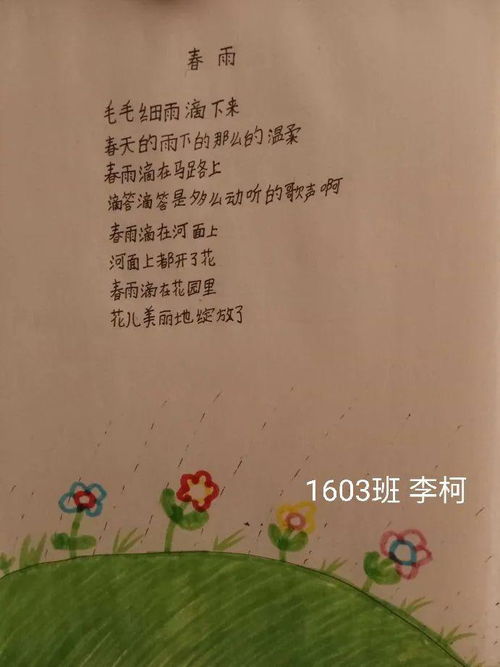 春雨
毛毛细雨滴下来
春天的雨下的那么的温柔
春雨滴在马路上
滴答滴答是多么动听的歌声啊
春雨滴在河面上
河面上都开了花
春雨滴在花园里
花儿美丽地绽放了
1603班 李柯